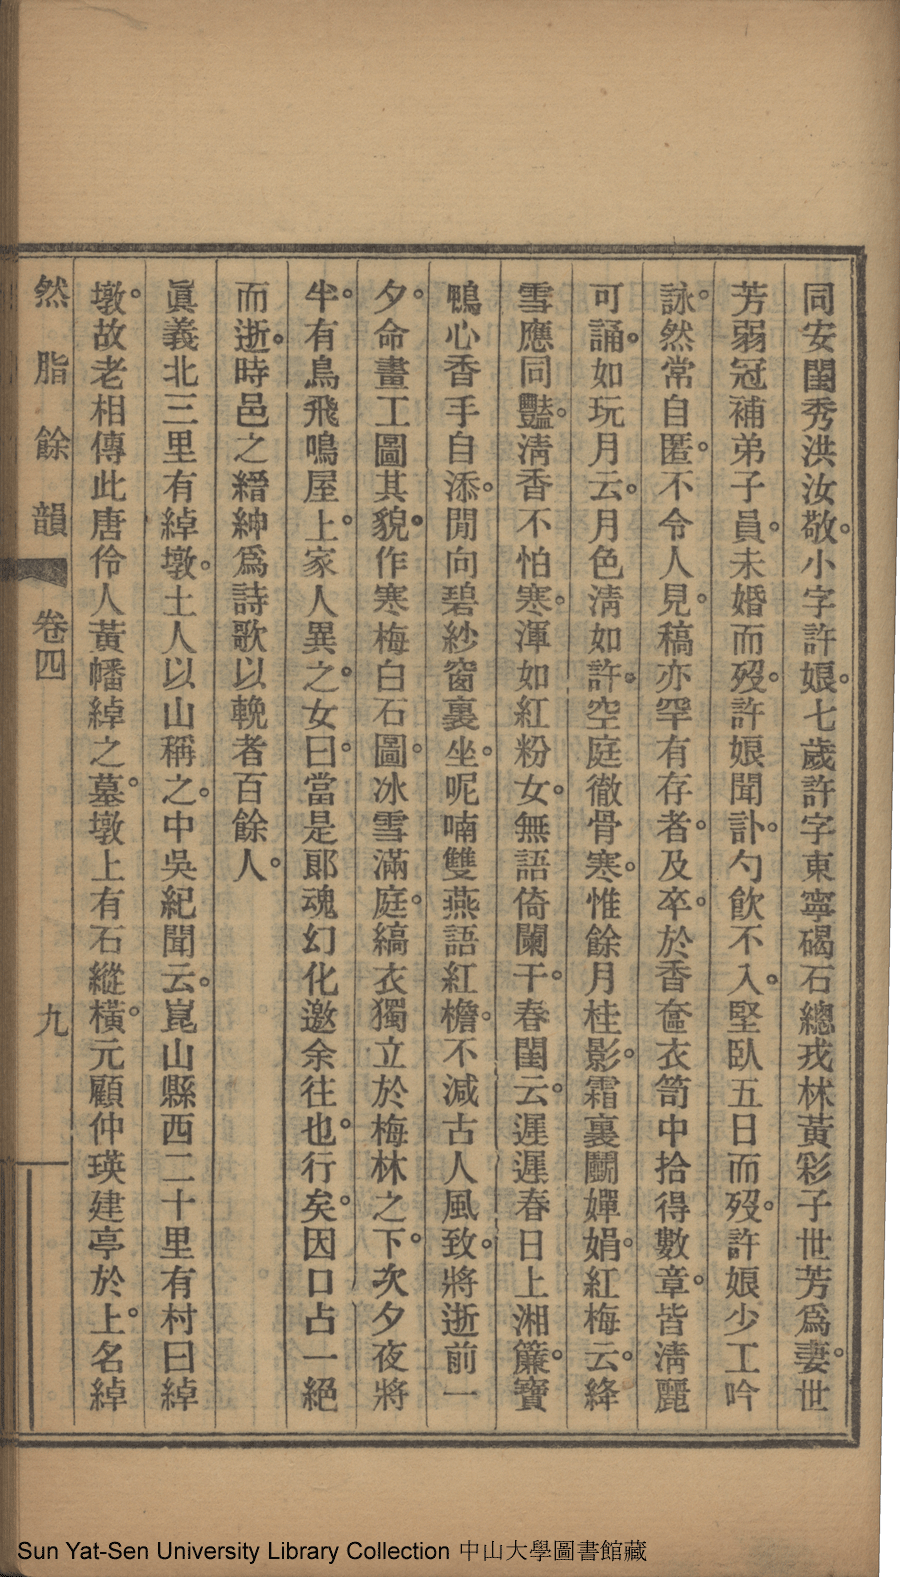 同安閨秀洪汝敬。小字許娘。七歲許字東寧碣石總戎林黃彩子世芳爲妻。世
芳弱冠補弟子員。未婚而歿。許娘聞訃。勺飲不入。堅臥五日而歿。許娘少工吟
詠。然常自匿。不令人見。稿亦罕有存者。及卒。於香奩衣笥中拾得數章。皆淸麗
可誦。如玩月云。月色淸如許。空庭徹骨寒。惟餘月桂影。霜裏鬭嬋娟。紅梅云。絳
雪應同豔。淸香不怕寒。渾如紅粉女。無語倚闌干。春閨云。遲遲春日上湘簾。寶
鴨心香手自添。閒向碧紗窗裏坐。呢喃雙燕語紅檐。不減古人風致。將逝前一
夕。命畫工圖其貌。作寒梅白石圖。冰雪滿庭。縞衣獨立於梅林之下。次夕夜將
半。有鳥飛鳴屋上。家人異之。女曰。當是郞魂幻化邀余往也。行矣。因口占一絕
而逝。時邑之縉紳爲詩歌以輓者百餘人。
眞義北三里有綽墩。土人以山稱之。中吳紀聞云。崑山縣西二十里有村曰綽
墩。故老相傳此唐伶人黃幡綽之墓。墩上有石縱橫。元顧仲瑛建亭於上。名綽
然脂餘韻 卷四 九
Sun Yat-Sen University Library Collection 中山大學圖書館藏